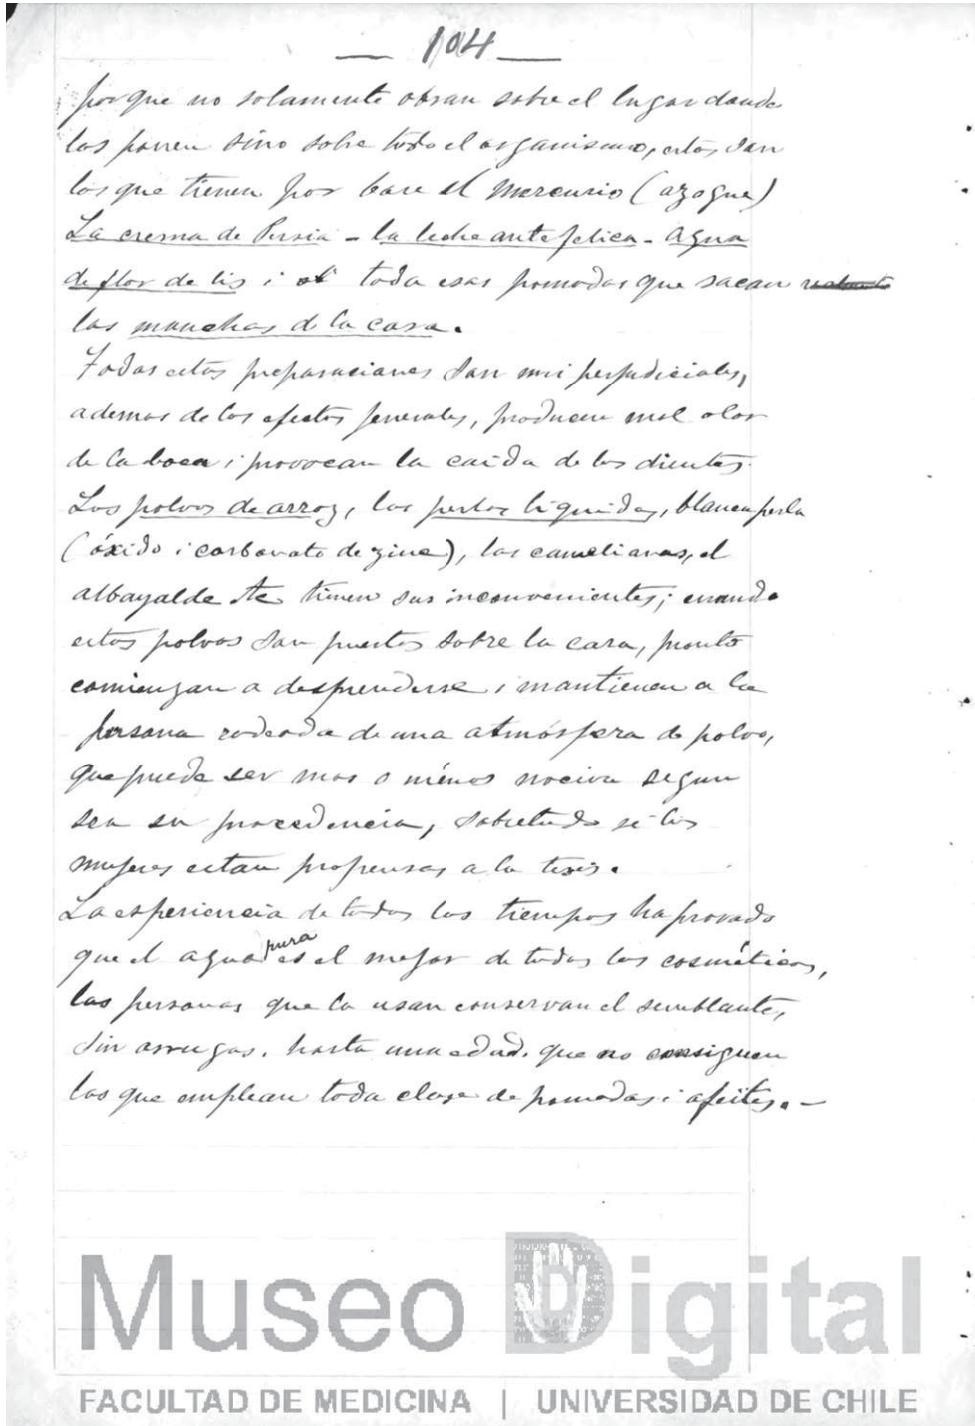 — 104 —
porque no solamente obran sobre el lugar donde
los ponen sino sobre todo el organismo, estos son
los que tienen por base el mercurio (azogue)
La crema de Persia - la leche antefelica - agua
de flor de lis i toda esas pomadas que sacan
las manchas de la cara.
Todas estas preparaciones son mui perjudiciales,
ademas de los efectos jenerales, producen mal olor
de la boca i provocan la caida de los dientes.
Los polvos de arroz, las perlas liquidas, blanca perla
(óxido i carbonato de zinc), las camelianas, el
albayalde tienen sus inconvenientes; cuando
estos polvos son puestos sobre la cara, pronto
comienzan a desprenderse i mantienen a la
persona rodeada de una atmósfera de polvo,
que puede ser mas o ménos nociva segun
sea su procedencia, sobretodo si las
mujeres estan propensas a la tisis.
La esperiencia de todos los tiempos ha provado
que el agua pura es el mejor de todos los cosméticos,
las personas que la usan conservan el semblante,
sin arrugas, hasta una edad, que no consiguen
las que emplean toda clase de pomadas i afeites. —
Museo Digital
FACULTAD DE MEDICINA | UNIVERSIDAD DE CHILE